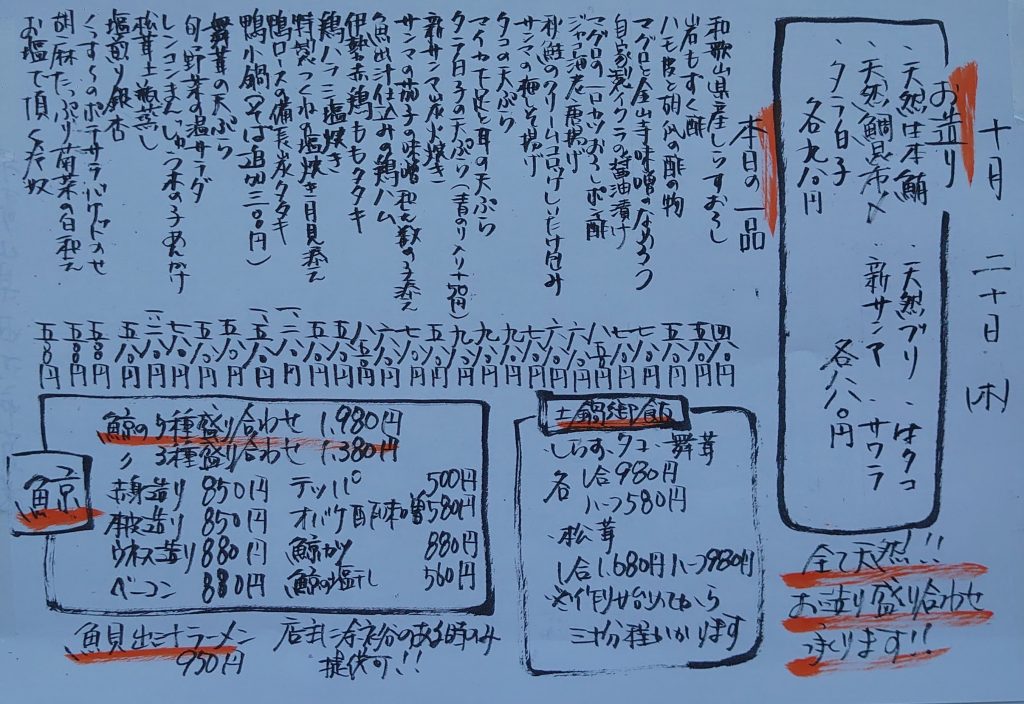 十月 二十日(木)
お造り
・天然生本鮪
・天然鯛昆布〆
・タラ白子
各九八〇円
・天然ブリ
・新サンマ
・生タコ
・サワラ
各八八〇円
全て天然!!
お造り盛り合わせ
承ります!!
本日の一品
和歌山県産しらすおろし 四八〇円
岩もずく酢 五八〇円
ハモ皮と胡瓜の酢の物 五八〇円
マグロと金山寺味噌のなめろう 七八〇円
自家製イクラの醤油漬け
マグロの一口カツおろしポン酢
ジャコ海老唐揚げ 六八〇円
秋鮭のクリームコロッケしいたけ包み
サンマの梅しそ揚げ
タコの天ぷら
マイカ下足と耳の天ぷら
タラ白子の天ぷら(青のり入り+50円)
新サンマ炭火焼き
サンマの茄子の味噌和え数の子添え
魚出汁仕込みの鶏ハム
伊勢赤鶏ももタタキ
鶏ハラミ塩焼き
特製つくねの塩焼き月見添え
鴨ロースの備長炭タタキ
鴨小鍋(そば追加三〇〇円)
舞茸の天ぷら
旬野菜の温サラダ
レンコンまんじゅうつ木の子あんかけ
松茸土瓶蒸し
塩煎り銀杏 五五〇円
くんすぃのポテサラバゲットのせ
胡麻たっぷり菊菜の白和え 五五〇円
お塩で頂く冷奴 五五〇円
土鍋御飯
・しらす・タコ・舞茸
各 1合980円
ハーフ580円
・松茸
1合1.680円ハーフ980円
※作り始めてから
三十分程かかります
鯨
鯨の5種盛り合わせ 1.980円
〃 3種盛り合わせ 1.380円
赤身造り 850円 テッパ 500円
本皮造り 850円 オバケ酢味噌 580円
ウネス造り 880円 鯨かつ 880円
ベーコン 880円 鯨の塩干し 560円
魚貝出汁ラーメン
950円
店主に余裕のある時のみ
提供可!!